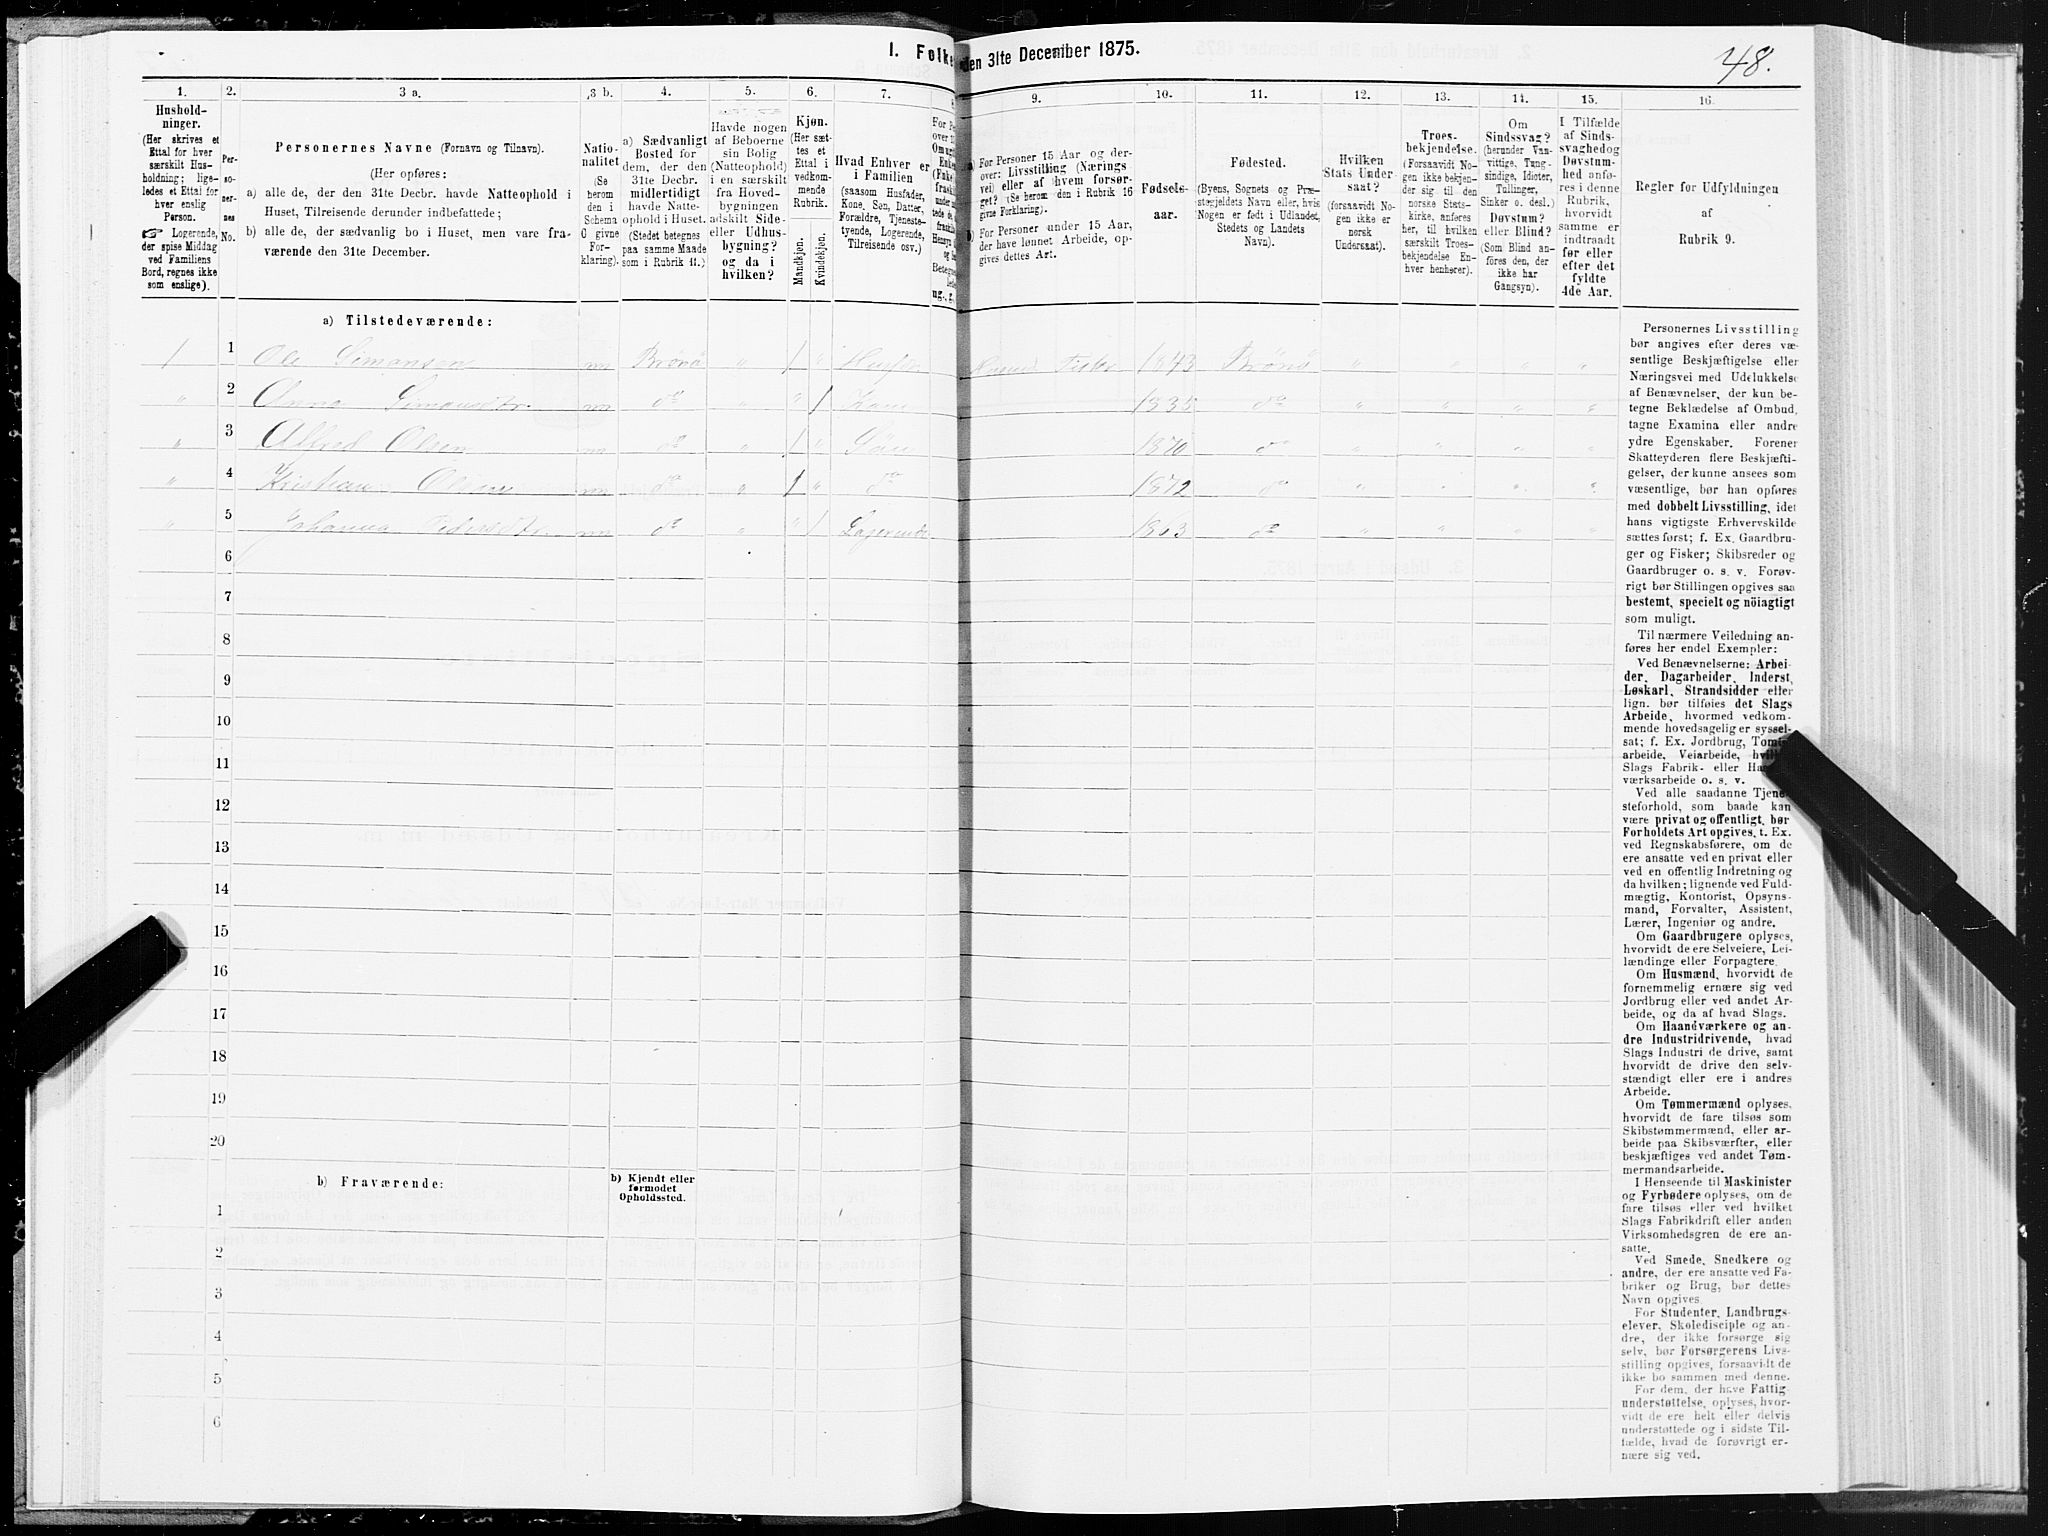 48.
1. Folke den 31te December 1875.
1. 2. 3 a. 3 b. 4. 5. 6. 7. 9. 10. 11. 12. 13. 14. 15. 16.
Hushold-
ninger.
(Her skrives et
Ettal for hver
særskilt Hus-
holdning; lige-
ledes et Ettal for
hver enslig
Person.
☞ Logerende,
der spise Middag
ved Familiens
Bord, regnes ikke
som enslige).
Per-
so-
ner-
nes
No.
Personernes Navne (Fornavn og Tilnavn).
(Her opføres:
a) alle de, der den 31te Decbr. havde Natteophold i
Huset, Tilreisende derunder indbefattede;
b) alle de, der sædvanlig bo i Huset, men vare fra-
værende den 31te December.
Natio-
nalitet
(Se
herom
den i
Schema
C givne
For-
klaring).
a) Sædvanligt
Bosted for
dem, der den
31te Decbr.
midlertidigt
havde Natte-
ophold i Huset.
(Stedet betegnes
paa samme Maade
som i Rubrik 11.)
Havde nogen
af Beboerne
sin Bolig
(Natteophold)
i en særskilt
fra Hoved-
bygningen
adskilt Side-
eller Udhus-
bygning?
og da i
hvilken?
Kjøn.
(Her sæt-
tes et
Ettal i
vedkom-
mende
Rubrik.
Mandkjøn.
Kvindekjøn.
Hvad Enhver er
i Familien
(saasom Husfader,
Kone, Søn, Datter,
Forældre, Tjeneste-
tyende, Logerende,
Tilreisende osv.)
a) For Personer 15 Aar og der-
over: Livsstilling (Nærings-
vei) eller af hvem forsør-
get? (Se herom den i Rubrik 16
givne Forklaring).
b) For Personer under 15 Aar,
der have lønnet Arbeide, op-
gives dettes Art.
Fødsels-
aar.
Fødested.
(Byens, Sognets og Præ-
stegjeldets Navn eller, hvis
Nogen er født i Udlandet,
Stedets og Landets
Navn).
Hvilken
Stats Under-
saat?
(forsaavidt No-
gen ikke er
norsk
Undersaat).
Troes-
bekjendelse.
(Forsaavidt No-
gen ikke bekjen-
der sig til den
norske Stats-
kirke, anføres
her, til hvilken
særskilt Troes-
bekjendelse En-
hver henhører).
Om
Sindssvag?
(herunder Van-
vittige, Tung-
sindige, Idioter,
Tullinger,
Sinker o. desl.)
Døvstum?
eller Blind?
(Som Blind an-
føres den, der
ikke har
Gangsyn).
I Tilfælde
af Sinds-
svaghedog
Døvstum-
hed anfø-
res i denne
Rubrik,
hvorvidt
samme er
indtraadt
før eller
efter det
fyldte
4de Aar.
Regler for Udfyldningen
af
Rubrik 9.
a) Tilstedeværende:
1 1 Ole Simonsen n Brønø " 1 " Husf. Fisker 1843 Brønø " " " "
" 2 Anna Simonsdtr. n do " " 1 Kone 1835 do " " " "
" 3 Alfred Olsen n do " 1 " Søn 1870 do " " " "
" 4 Kristian Olsen n do " 1 " do 1872 do " " " "
" 5 Johanna Pedersdtr n do " " 1 Logerende 1863 do " " " "
6
7
8
9
10
11
12
13
14
15
16
17
18
19
20
b) Fraværende:
b) Kjendt eller
formodet
Opholdssted.
1
2
3
4
5
6
Personernes Livsstilling
bør angives efter deres væ-
sentlige Beskjæftigelse eller
Næringsvei med Udelukkelse
af Benævnelser, der kun be-
tegne Beklædelse af Ombud,
tagne Examina eller andre
ydre Egenskaber. Forener
Skatteyderen flere Beskjæfti-
gelser, der kunne ansees som
væsentlige, bør han opføres
med dobbelt Livsstilling, idet
hans vigtigste Erhvervskilde
sættes først; f. Ex. Gaardbru-
ger og Fisker; Skibsreder og
Gaardbruger o. s. v. Forøv-
rigt bør Stillingen opgives saa
bestemt, specielt og nöiagtigt
som muligt.
Til nærmere Veiledning an-
føres her endel Exempler:
Ved Benævnelserne: Arbei-
der, Dagarbeider, Inderst,
Løskarl, Strandsidder eller
lign. bør tilføies det Slags
Arbeide, hvormed vedkom-
mende hovedsagelig er syssel-
sat; f. Ex. Jordbrug,
arbeide, Veiarbeide,
Slags Fabrik- eller
værksarbeide o. s. v.
Ved alle saadanne Tjene-
steforhold, som baade kan
være privat og offentligt, bør
Forholdets Art opgives, t. Ex.
ved Regnskabsførere, om de
ere ansatte ved en privat eller
ved en offentlig Indretning og
da hvilken; lignende ved Fuld-
mægtig, Kontorist, Opsyns-
mand, Forvalter, Assistent,
Lærer, Ingeniør og andre.
Om Gaardbrugere oplyses,
hvorvidt de ere Selveiere, Lei-
lændinge eller Forpagtere.
Om Husmænd, hvorvidt de
fornemmelig ernære sig ved
Jordbrug eller ved andet Ar-
beide, og da af hvad Slags.
Om Haandværkere og an-
dre Industridrivende, hvad
Slags Industri de drive, samt
hvorvidt de drive den selv-
stændigt eller ere i andres
Arbeide.
Om Tømmermænd oplyses,
hvorvidt de fare tilsøs som
Skibstømmermænd, eller ar-
beide paa Skibsværfter, eller
beskjæftiges ved andet Tøm-
mermandsarbeide.
I Henseende til Maskinister
og Fyrbødere oplyses, om de
fare tilsøs eller ved hvilket
Slags Fabrikdrift eller anden
Virksomhedsgren de ere an-
satte.
Ved Smede, Snedkere og
andre, der ere ansatte ved Fa-
briker og Brug, bør dettes
Navn opgives.
For Studenter, Landbrugs-
elever, Skoledisciple og an-
dre, der ikke forsørge sig
selv, bør Forsørgerens Livs-
stilling opgives, forsaavidt de
ikke bo sammen med denne.
For dem, der have Fattig-
understøttelse, oplyses, hvor-
vidt de ere helt eller delvis
understøttede og i sidste Til-
fælde, hvad de forøvrigt er-
nære sig ved.